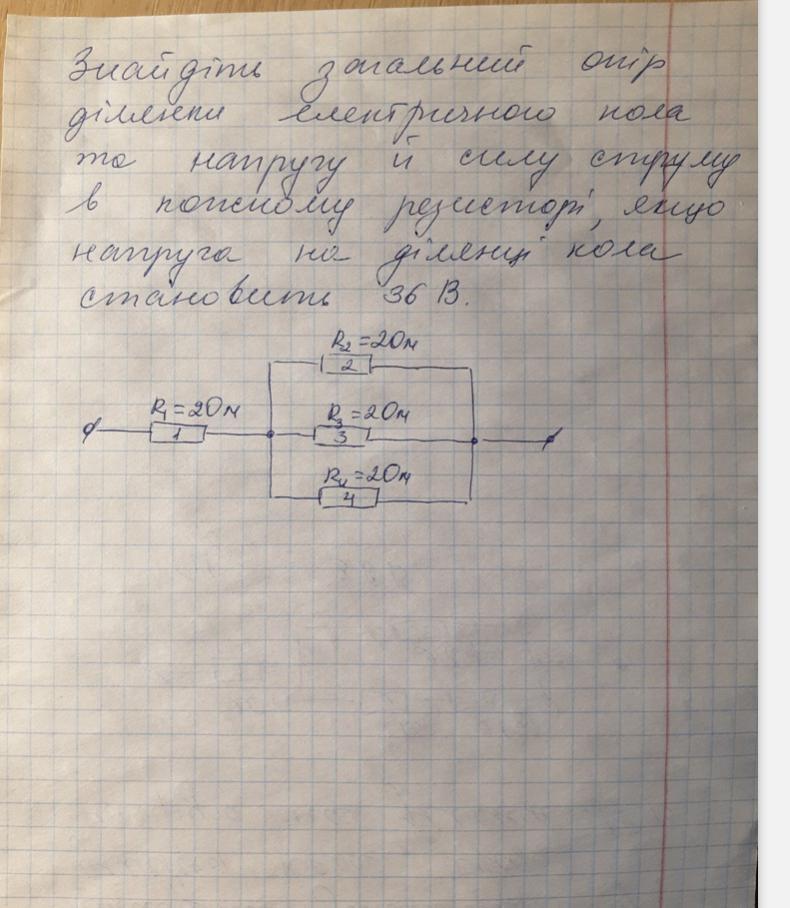 Знайдіть загальний опір
ділянки електричного кола
та напругу й силу струму
в кожному резисторі, якщо
напруга на ділянці кола
становить 36 В.
R₂ = 2Ом
2
R₁ = 2Ом
1
R₃ = 2Ом
3
R₄ = 2Ом
4